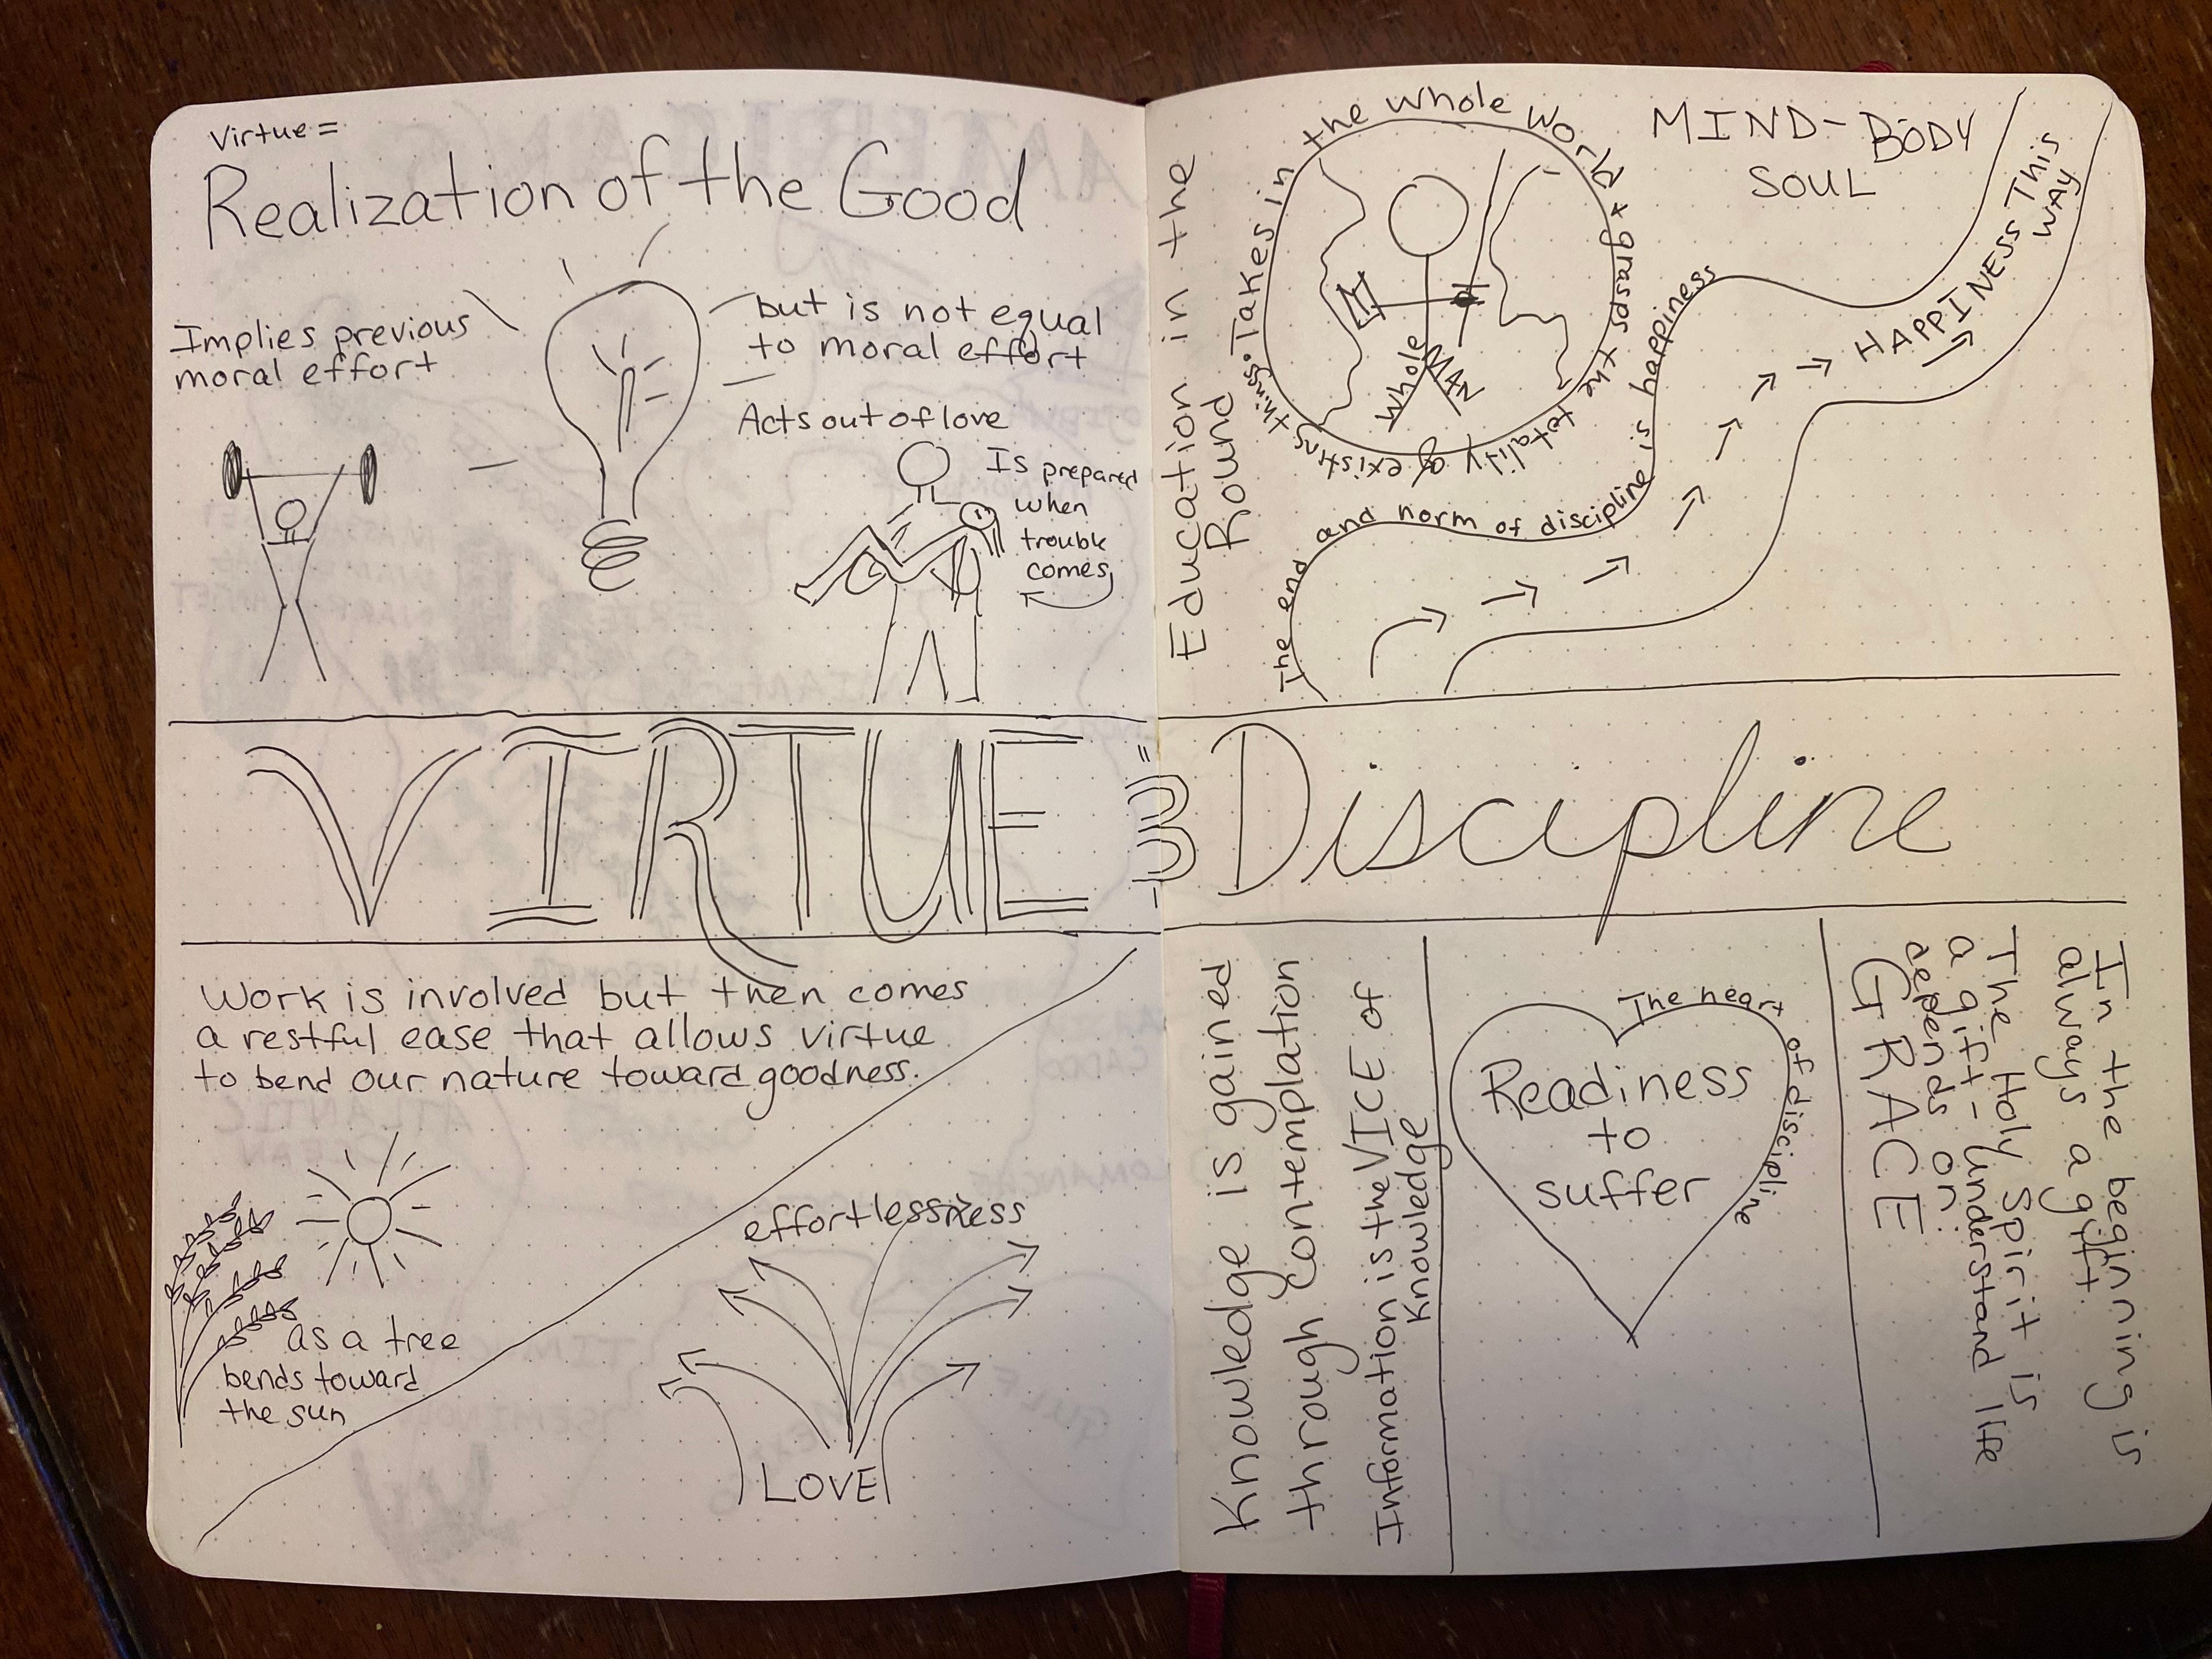 Virtue =
Realization of the Good
Implies previous
moral effort
but is not equal
to moral effort
Acts out of love
Is prepared
when
trouble
comes
VIRTUE
Work is involved but then comes
a restful ease that allows virtue
to bend our nature toward goodness.
as a tree
bends toward
the sun
effortlessness
LOVE
Education in the
Round
Takes in the whole world & grasps the totality of existing things.
Whole
MAN
MIND-BODY
SOUL
The end and norm of discipline is happiness
HAPPINESS This
WAY
Discipline
Knowledge is gained
through contemplation
Information is the VICE of
Knowledge
The heart of discipline
Readiness
to
suffer
In the beginning is
always a gift.
The Holy Spirit is
a gift - understand life
depends on
GRACE